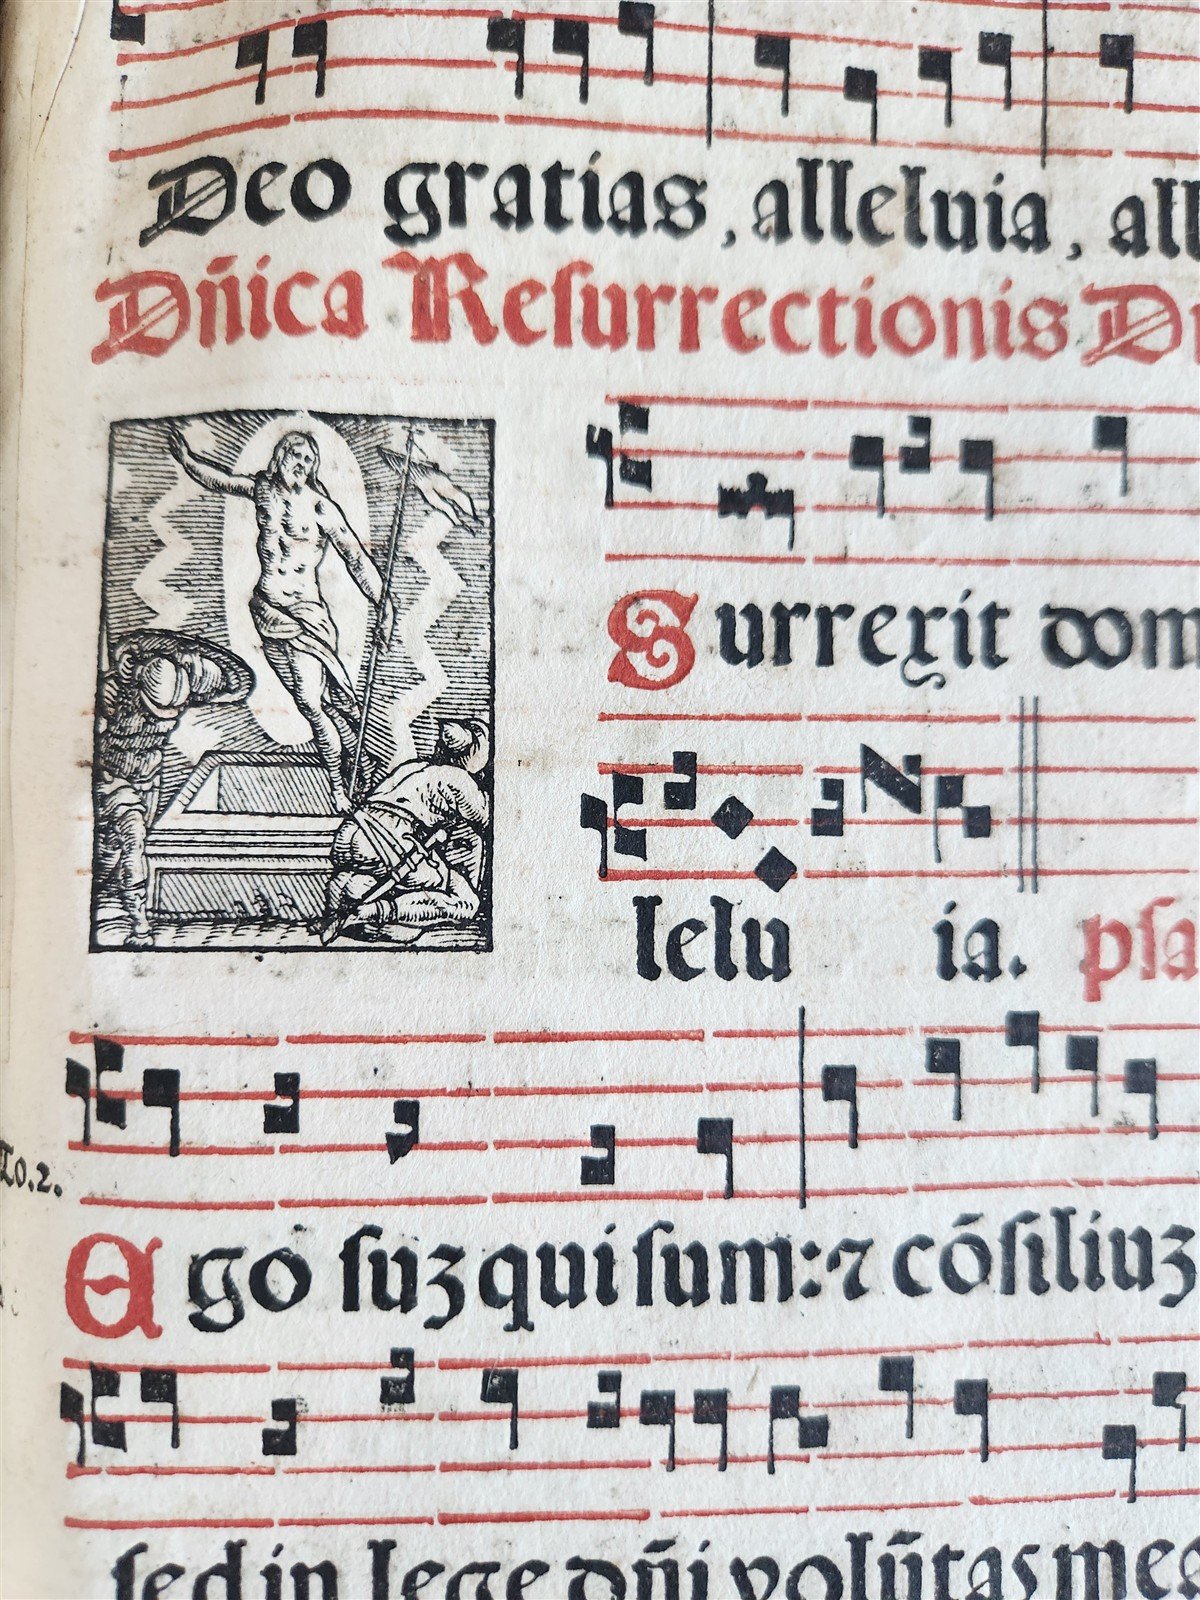 Deo gratias, alleluia, all
Dñica Reſurrectionis D
Surrexit dom
lelu ia. pſa
To.2.
Ego ſuʒ qui ſum: ⁊ cōſiliuʒ
ſed in lege dñi volūtas mea